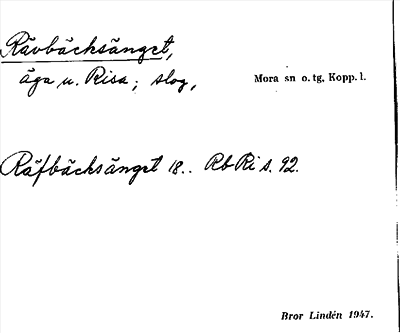 Rävbäcksänget,
äga u. Risa; slog,
Mora sn o. tg, Kopp. l.
Räfbäcksänget 18.. Rb Ri s. 92.
Bror Lindén 1947.